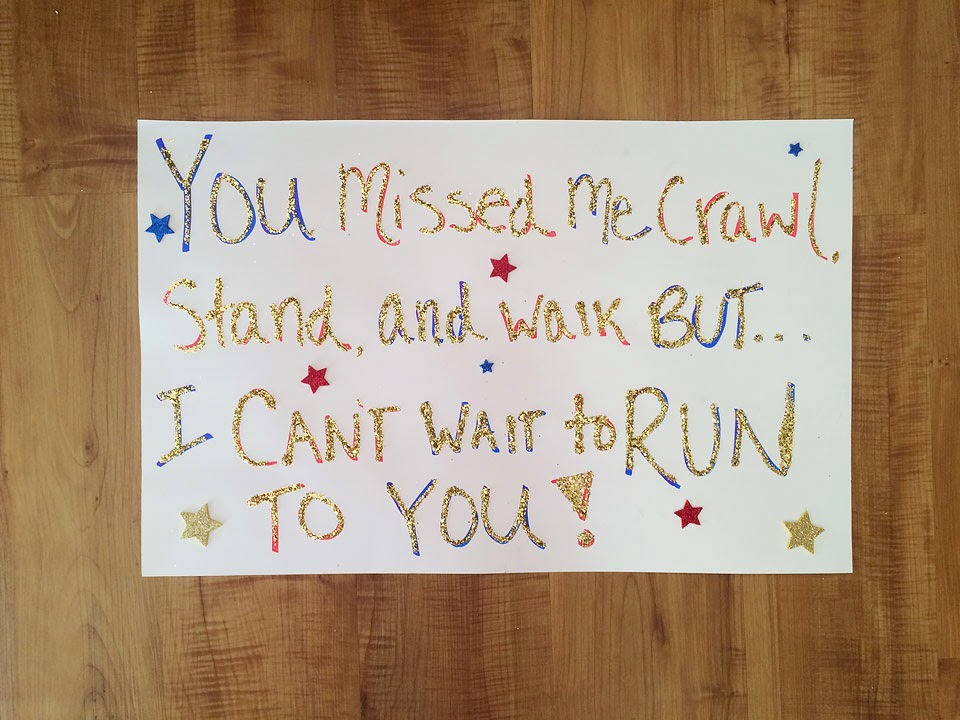 You missed me crawl,
Stand, and walk BUT...
I CAN'T WAIT to RUN
TO YOU!